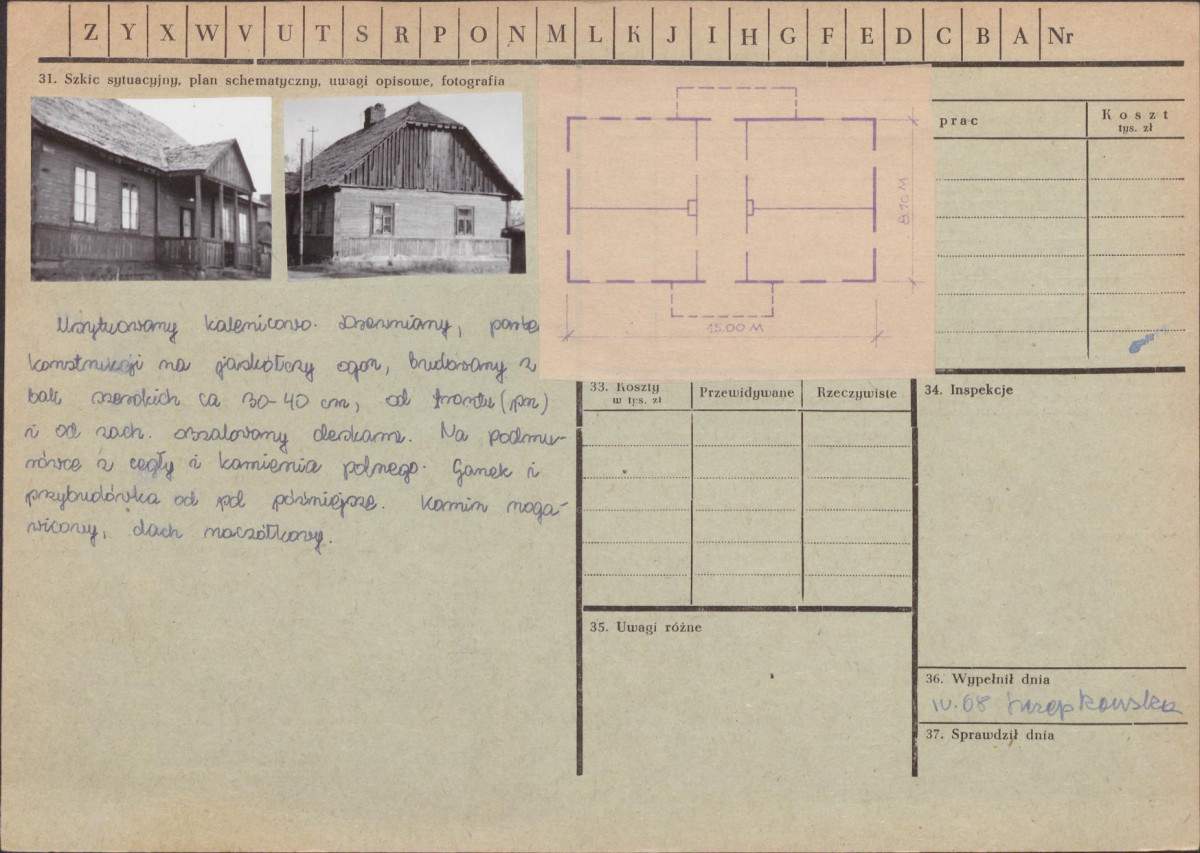 Z Y X W V U T S R P O N M L K J I H G F E D C B A Nr
31. Szkic sytuacyjny, plan schematyczny, uwagi opisowe, fotografia
8.70 M
15.00 M
prac
Koszt
tys. zł
Usytuowany kalenicowo. Drewniany,
konstrukcji na jaskółczy ogon, budowany z
bali szerokich ca 30-40 cm, od frontu (pn)
i od zach. oszalowany deskami. Na podmu-
rówce z cegły i kamienia polnego. Ganek i
przybudówka od pd późniejsze. Komin noga-
wicowy, dach naczółkowy.
33. Koszty
w tys. zł
Przewidywane
Rzeczywiste
34. Inspekcje
35. Uwagi różne
36. Wypełnił dnia
IV.68
37. Sprawdził dnia